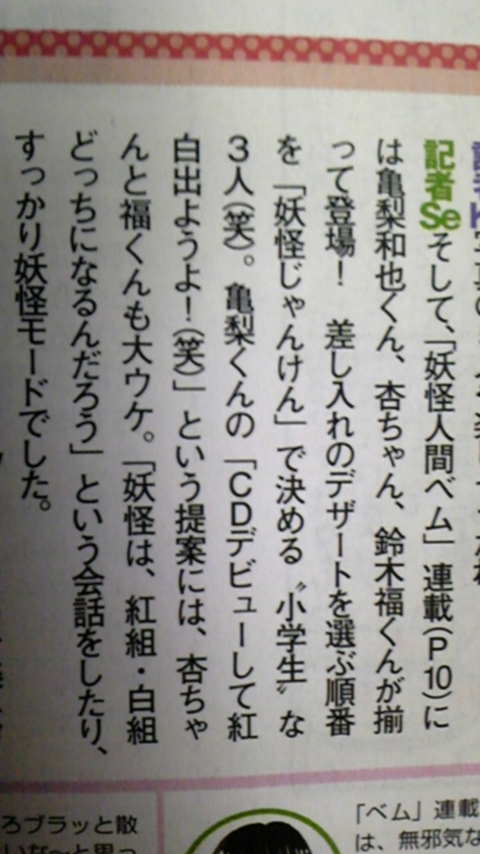 記者Se そして、「妖怪人間ベム」連載(P10)に
は亀梨和也くん、杏ちゃん、鈴木福くんが揃
って登場！　差し入れのデザートを選ぶ順番
を「妖怪じゃんけん」で決める〝小学生〟な
3人(笑)。亀梨くんの「CDデビューして紅
白出ようよ！(笑)」という提案には、杏ちゃ
んと福くんも大ウケ。「妖怪は、紅組・白組
どっちになるんだろう」という会話をしたり、
すっかり妖怪モードでした。
「ベム」連載
は、無邪気な
ろブラッと散